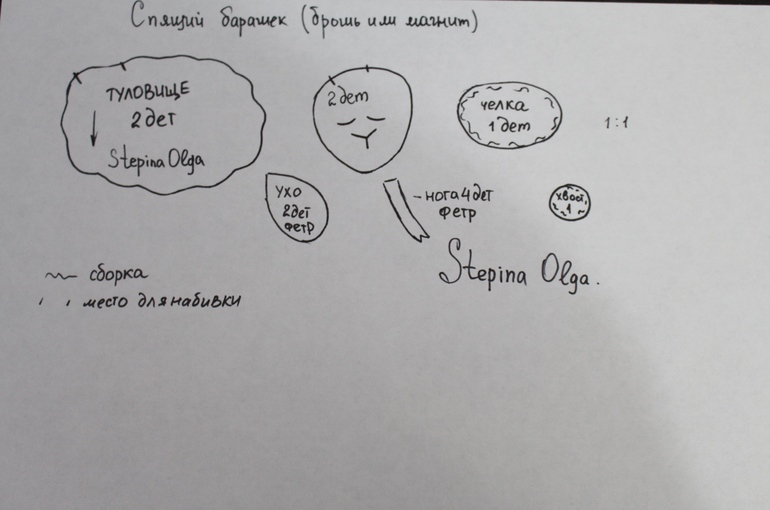 Спящий барашек (брошь или магнит)
ТУЛОВИЩЕ
2 дет
Stepina Olga
2 дет
челка
1 дет
1:1
УХО
2 дет
фетр
- нога 4 дет
фетр
хвост,
1
Stepina Olga.
сборка
место для набивки